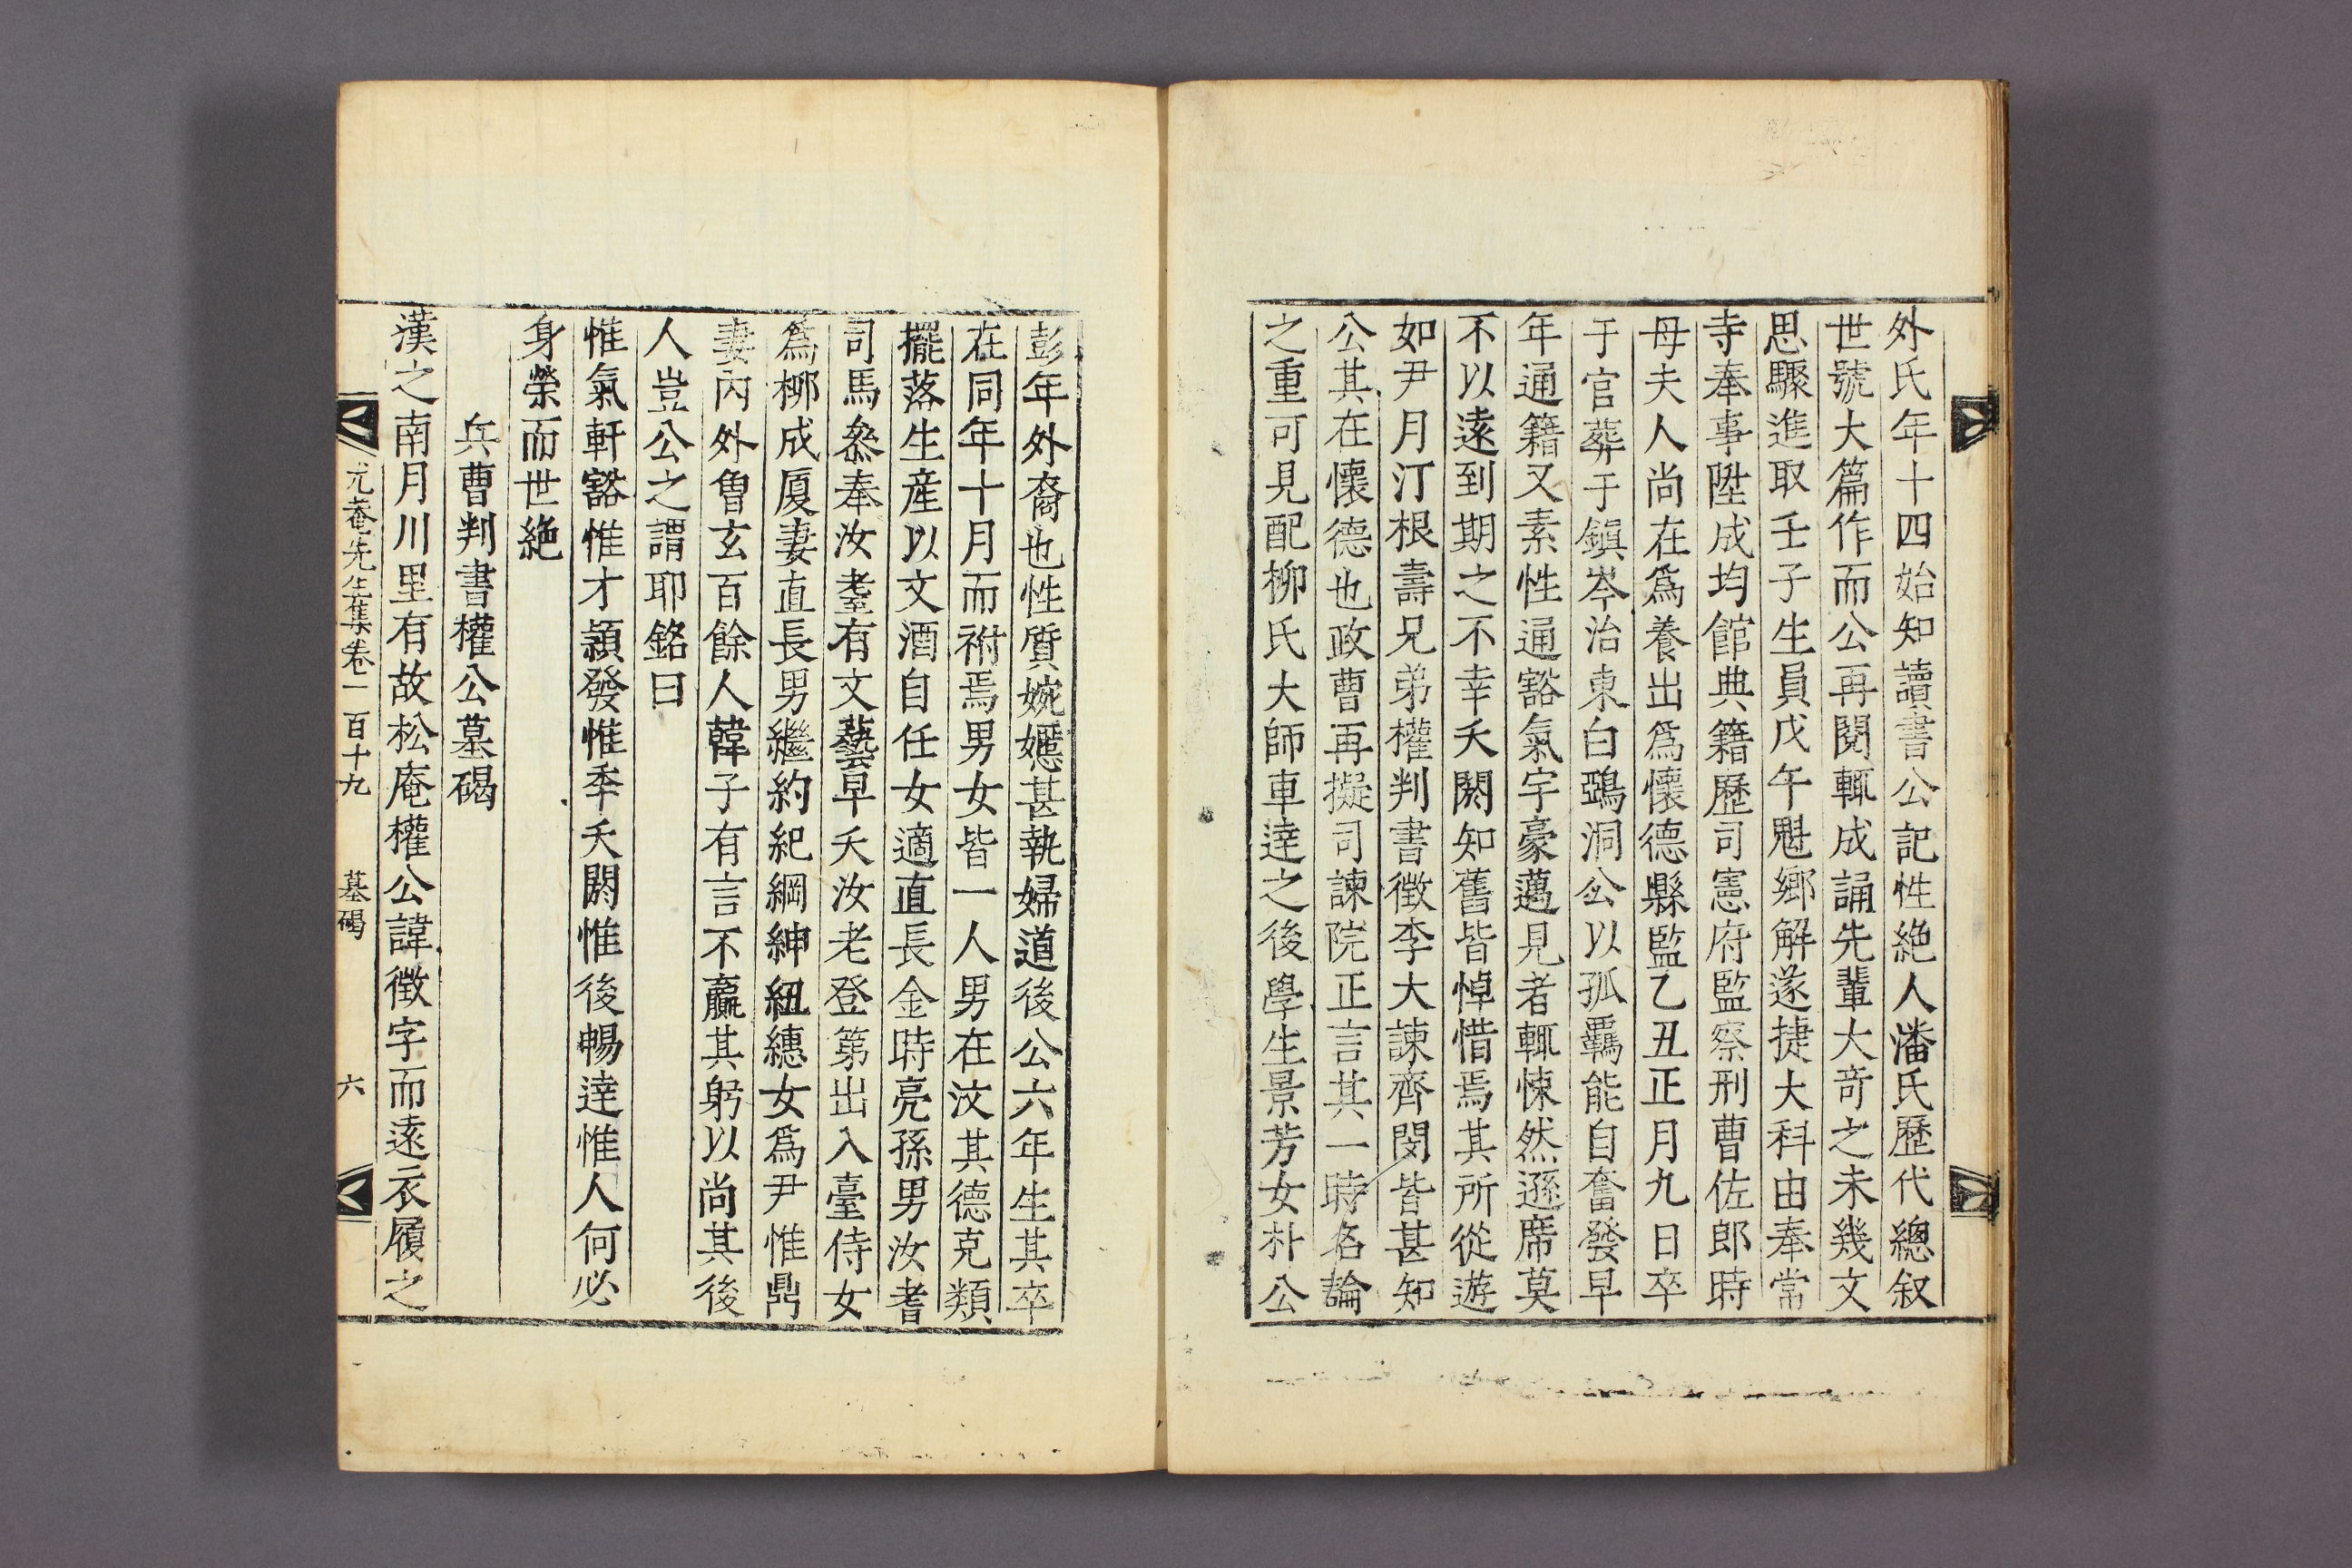 外氏年十四始知讀書公記性絶人潘氏歷代總叙
世號大篇作而公再閱輒成誦先輩大奇之未幾文
思驟進取壬子生員戊午魁鄕解遂捷大科由奉常
寺奉事陞成均館典籍歷司憲府監察刑曹佐郎時
母夫人尚在爲養出爲懷德縣監乙丑正月九日卒
于官葬于鎭岑治東白鵶洞公以孤羈能自奮發早
年通籍又素性通豁氣宇豪邁見者輒悚然遜席莫
不以遠到期之不幸夭閼知舊皆悼惜焉其所從遊
如尹月汀根壽兄弟權判書徵李大諫齊閔皆甚知
公其在懷德也政曹再擬司諫院正言其一時名論
之重可見配柳氏大師車達之後學生景芳女朴公
彭年外裔也性質婉嫕甚執婦道後公六年生其卒
在同年十月而祔焉男女皆一人男在汶其德克類
擺落生産以文酒自任女適直長金時亮孫男汝耆
司馬叅奉汝耋有文藝早夭汝老登第出入臺侍女
爲柳成厦妻直長男繼約紀綱紳紐繐女爲尹惟鼎
妻內外曾玄百餘人韓子有言不贏其躬以尚其後
人豈公之謂耶銘曰
惟氣軒豁惟才頴發惟季夭閼惟後暢達惟人何必
身榮而世絶
兵曹判書權公墓碣
漢之南月川里有故松庵權公諱徵字而遠衣履之
尤菴先生集卷一百十九 墓碣 六